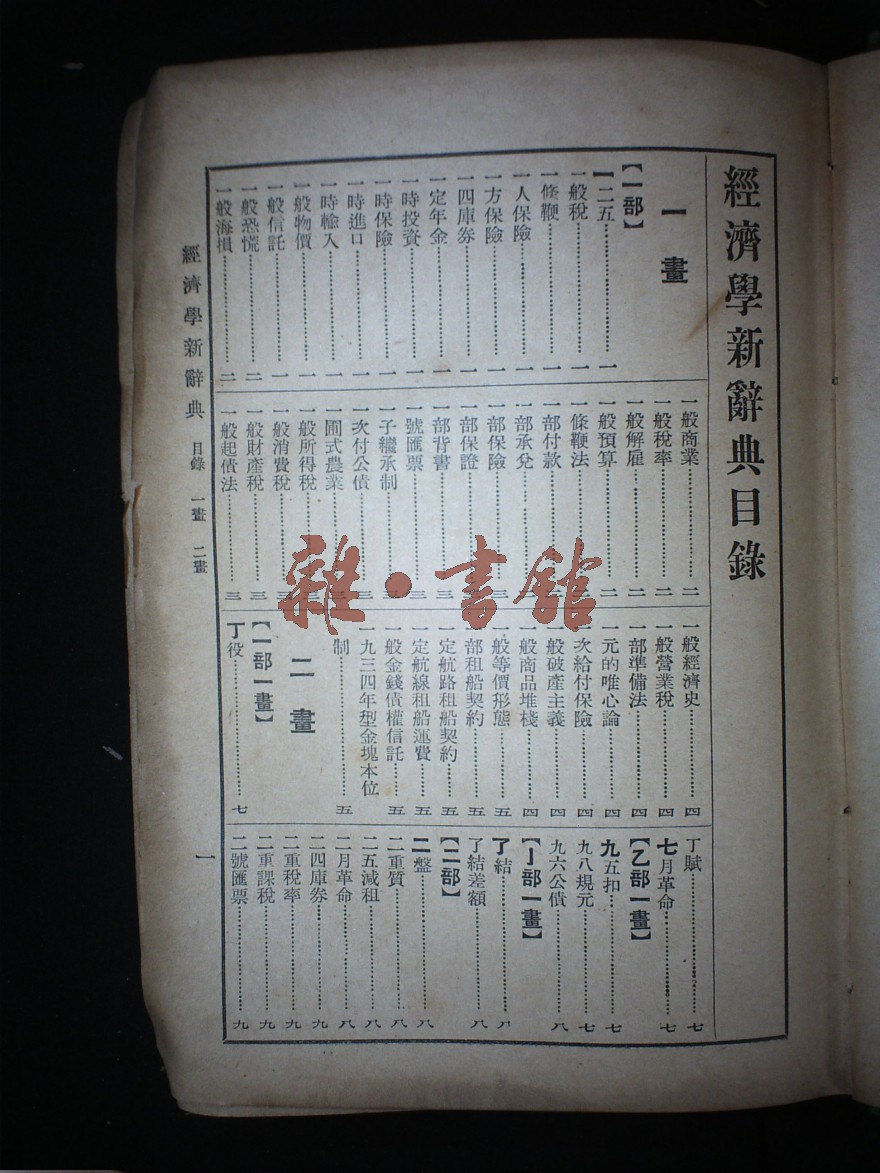 經濟學新辭典目錄
一畫
【一部】
一二五……一
一般稅……一
一條鞭……一
一人保險……一
一方保險……一
一四庫券……一
一定年金……一
一時投資……一
一時保險……一
一時進口……一
一時輸入……一
一般物價……一
一般信託……一
一般恐慌……二
一般海損……二
一般商業……二
一般稅率……二
一般解雇……二
一般預算……二
一條鞭法
一部付款
一部承兌
一部保險
一部保證
一部背書
一號匯票
一子繼承制
一次付公債……三
一圃式農業
一般所得稅
一般消費稅……三
一般財產稅……三
一般起債法……三
一般經濟史……四
一般營業稅……四
一部準備法……四
一元的唯心論……四
一次給付保險……四
一般破產主義……四
一般商品堆棧……四
一般等價形態……五
一部租船契約……五
一定航路租船契約……五
一定航線租船運費……五
一般金錢債權信託……五
一九三四年型金塊本位
制……五
二畫
【一部一畫】
丁役……七
丁賦……七
七月革命……七
【乙部一畫】
九五扣……七
九八規元……七
九六公債……八
【亅部一畫】
了結……八
了結差額……八
【二部】
二盤……八
二重質……八
二五減租……八
二月革命……八
二四庫券……九
二重稅率……九
二重課稅……九
二號匯票……九
經濟學新辭典 目錄 一畫 二畫
一
雜·書館